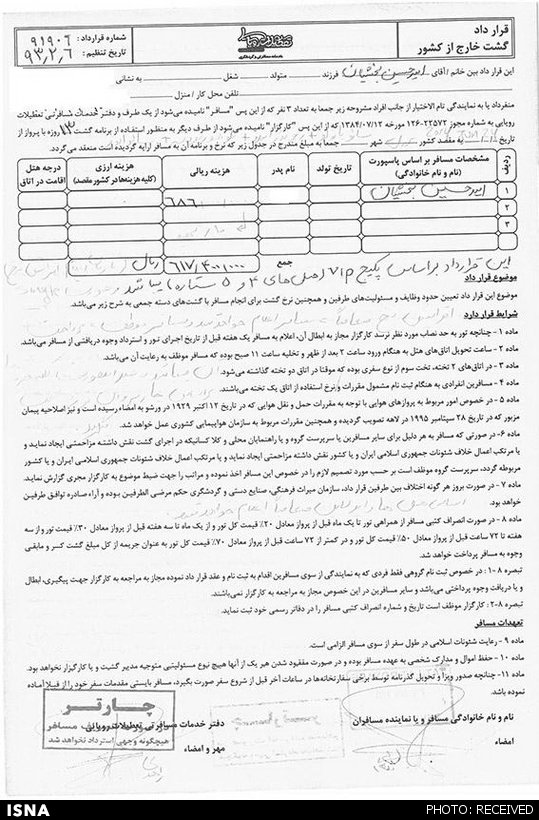 قرار داد
گشت خارج از کشور
شماره قرارداد : ۹۱۹۰۶
تاریخ تنظیم : ۹۳,۲,۶
این قرار داد بین خانم / آقای امیرحسین فرزند متولد شغل به نشانی
تلفن محل کار / منزل
منفرداً یا به نمایندگی تام الاختیار از جانب افراد مشروحه زیر جمعاً به تعداد ۳ نفر که از این پس "مسافر" نامیده می‌شود از یک طرف و دفتر خدمات مسافرتی تعطیلات
رویایی به شماره مجوز ۲۲۵۷۲-۱۲۶ مورخه ۱۳۸۴/۰۷/۱۲ که از این پس "کارگزار" نامیده می‌شود از طرف دیگر به منظور استفاده از برنامه گشت ۱۳ روزه با پرواز از
تاریخ به مقصد کشور شهر جمعاً به مبلغ مندرج در جدول زیر که نرخ و برنامه آن به مسافر ارایه گردیده است منعقد می‌گردد.
ردیف
مشخصات مسافر بر اساس پاسپورت
(نام و نام خانوادگی)
تاریخ تولد
نام پدر
هزینه ریالی
هزینه ارزی
(کلیه هزینه‌ها در کشور مقصد)
درجه هتل
اقامت در اتاق
۱ امیرحسین
۲
۳
جمع ریال
این قرارداد براساس پکیج VIP (هتل‌های ۴ و ۵ ستاره) میباشد
موضوع قرار داد
موضوع این قرار داد تعیین حدود وظایف و مسئولیت‌های طرفین و همچنین نرخ گشت برای انجام مسافر با گشت‌های دسته جمعی به شرح زیر می‌باشد.
شرایط قرار دارد
ماده ۱ - چنانچه تور به حد نصاب مورد نظر نرسد کارگزار مجاز به ابطال آن، اعلام به مسافر یک هفته قبل از تاریخ اجرای تور و استرداد وجوه دریافتی از مسافر می‌باشد.
ماده ۲ - ساعت تحویل اتاق‌های هتل به هنگام ورود ساعت ۲ بعد از ظهر و تخلیه ساعت ۱۱ صبح بوده که مسافر موظف به رعایت آن می‌باشد.
ماده ۳ - در اتاق‌های ۲ تخته، تخت سوم از نوع سفری بوده که موقتاً در اتاق دو تخته گذاشته می‌شود.
ماده ۴ - مسافرین انفرادی به هنگام ثبت نام مشمول مقررات و نرخ استفاده از اتاق یک تخته می‌باشند.
ماده ۵ - در خصوص امور مربوط به پروازهای هوایی با توجه به مقررات حمل و نقل هوایی که در تاریخ ۱۲ اکتبر ۱۹۲۹ در ورشو به امضاء رسیده است و نیز اصلاحیه پیمان
مزبور که در تاریخ ۲۸ سپتامبر ۱۹۹۵ در لاهه تصویب گردیده و همچنین مقررات مربوط به سازمان هواپیمایی کشوری عمل خواهد شد.
ماده ۶ - در صورتی که مسافر به هر دلیل برای سایر مسافرین یا سرپرست گروه و یا راهنمایان محلی و کلا کسانیکه در اجرای گشت نقش داشته مزاحمتی ایجاد نماید و
یا مرتکب اعمال خلاف شئونات جمهوری اسلامی ایران و یا کشور نقش داشته مزاحمتی ایجاد نماید و یا مرتکب اعمال خلاف شئونات جمهوری اسلامی ایران و یا کشور
مربوطه گردد، سرپرست گروه موظف است بر حسب مورد تصمیم لازم را در خصوص این مسافر اخذ نموده و مراتب را جهت ضبط موضوع به کارگزار مجری گزارش نماید.
ماده ۷ - در صورت بروز هر گونه اختلاف بین طرفین قرار داد، سازمان میراث فرهنگی، صنایع دستی و گردشگری حکم مرضی الطرفین بوده و آراء صادره توافق طرفین
خواهد بود.
ماده ۸ - در صورت انصراف کتبی مسافر از همراهی تور تا یک ماه قبل از پرواز معادل ۲۰٪ قیمت کل تور و از یک ماه تا سه هفته قبل از پرواز معادل ۳۰٪ قیمت تور و از سه
هفته تا ۷۲ ساعت قبل از پرواز معادل ۵۰٪ قیمت کل تور و در کمتر از ۷۲ ساعت قبل از پرواز معادل ۷۰٪ قیمت کل تور به عنوان جریمه از کل مبلغ گشت کسر و مابقی
وجوه به مسافر پرداخت خواهد شد.
تبصره ۱-۸ : در خصوص ثبت نام گروهی فقط فردی که به نمایندگی از سوی مسافرین اقدام به ثبت نام و عقد قرار داد نموده مجاز به مراجعه به کارگزار جهت پیگیری، ابطال
و یا دریافت وجوه پرداختی می‌باشد و سایر مسافرین در این خصوص مجاز به مراجعه به کارگزار نمی‌باشند.
تبصره ۲-۸ : کارگزار موظف است تاریخ و شماره انصراف کتبی مسافر را در دفاتر رسمی خود ثبت نماید.
تعهدات مسافر
ماده ۹ - رعایت شئونات اسلامی در طول سفر از سوی مسافر الزامی است.
ماده ۱۰ - حفظ اموال و مدارک شخصی به عهده مسافر بوده و در صورت مفقود شدن هر یک از آنها هیچ نوع مسئولیتی متوجه مدیر گشت و یا کارگزار نخواهد بود.
ماده ۱۱ - چنانچه صدور ویزا و تحویل گذرنامه توسط برخی سفارتخانه‌ها در ساعات آخر قبل از شروع سفر صورت بگیرد، مسافر بایستی مقدمات سفر خود را از قبلا آماده
نموده باشد.
نام و نام خانوادگی مسافر و یا نماینده مسافران
امضاء
دفتر خدمات مسافرتی تعطیلات رویایی
مهر و امضاء
چارتر
هیچگونه وجهی استرداد نخواهد شد
ISNA
PHOTO: RECEIVED